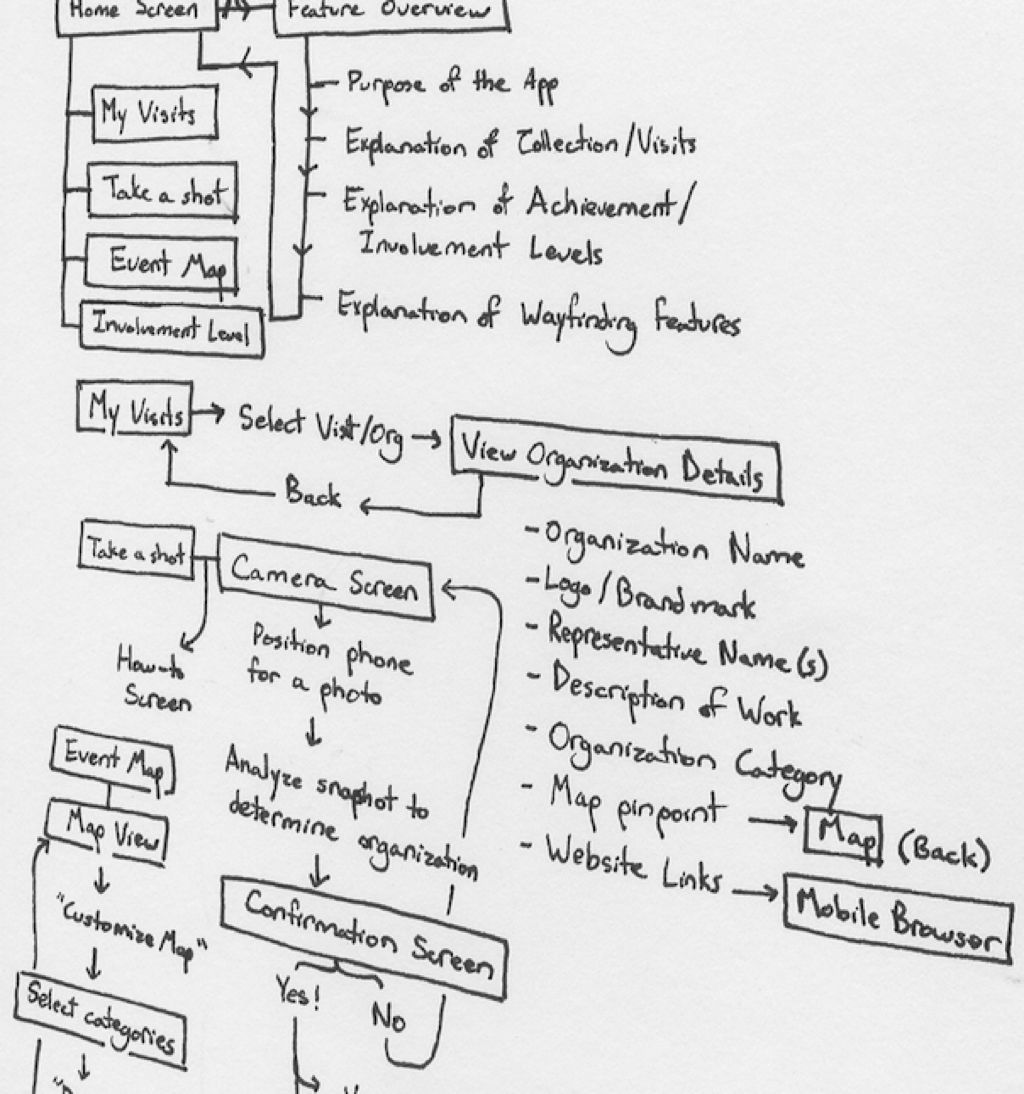 Home Screen
Feature Overview
My Visits
Take a shot
Event Map
Involvement Level
- Purpose of the App
- Explanation of Collection/Visits
- Explanation of Achievement/
Involvement Levels
- Explanation of Wayfinding Features
My Visits
Select Visit/Org
View Organization Details
Back
- Organization Name
- Logo/Brandmark
- Representative Name(s)
- Description of Work
- Organization Category
- Map pinpoint
Map
(Back)
- Website Links
Mobile Browser
Take a shot
Camera Screen
How-to
Screen
Position phone
for a photo
Analyze snaphot to
determine organization
Confirmation Screen
Yes!
No
Event Map
Map View
"Customize Map"
Select categories